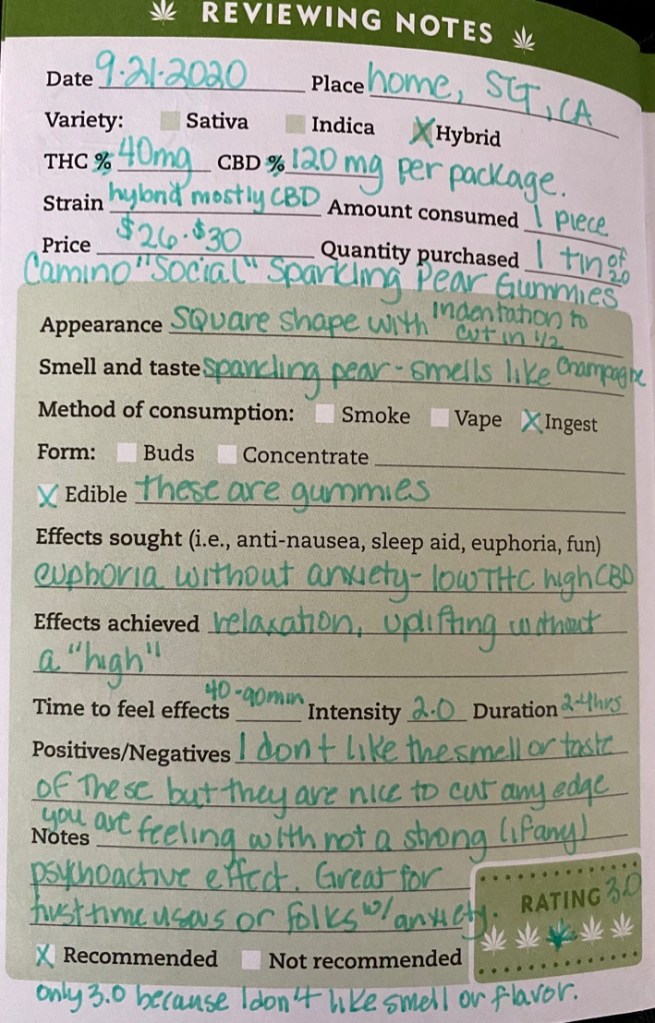 REVIEWING NOTES
Date 9.21.2020 Place home, SGT, CA
Variety: Sativa Indica X Hybrid
THC % 40mg CBD % 120 mg per package.
Strain hybrid mostly CBD Amount consumed 1 piece
Price $26.$30 Quantity purchased 1 tin of 20
Camino "Social" Sparkling Pear Gummies
Appearance Square shape with indentation to cut in 1/2
Smell and taste sparcling pear - smells like champagne
Method of consumption: Smoke Vape X Ingest
Form: Buds Concentrate
X Edible these are gummies
Effects sought (i.e., anti-nausea, sleep aid, euphoria, fun)
euphoria without anxiety - low THC high CBD
Effects achieved relaxation, uplifting without
a "high"
Time to feel effects 40-90min Intensity 2.0 Duration 2-4hrs
Positives/Negatives I don't like the smell or taste
of these but they are nice to cut any edge
Notes you are feeling with not a strong (if any)
psychoactive effect. Great for
first time users or folks w/ anxiety.
RATING 3.0
X Recommended Not recommended
only 3.0 because I don't like smell or flavor.